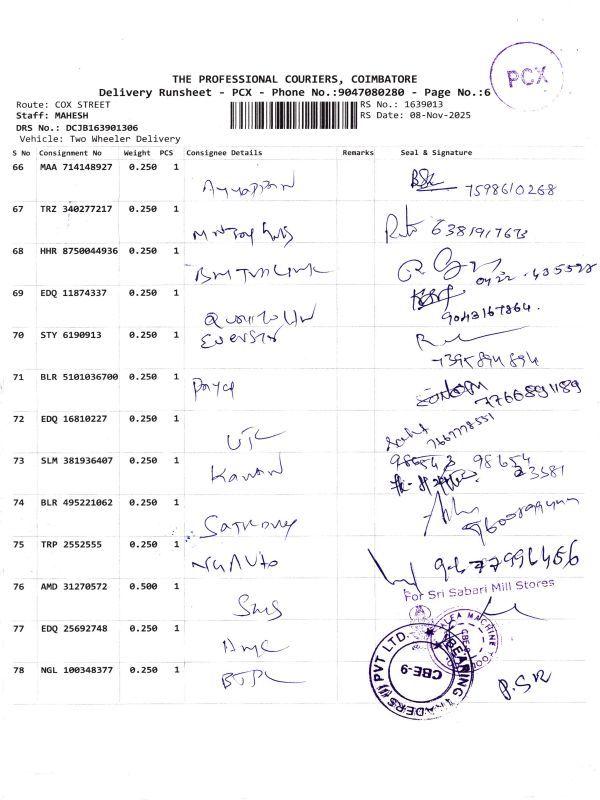 PCX
THE PROFESSIONAL COURIERS, COIMBATORE
Delivery Runsheet - PCX - Phone No.:9047080280 - Page No.:6
Route: COX STREET RS No.: 1639013
Staff: MAHESH RS Date: 08-Nov-2025
DRS No.: DCJB163901306
Vehicle: Two Wheeler Delivery
S No Consignment No Weight PCS Consignee Details Remarks Seal & Signature
66 MAA 714148927 0.250 1 Ayyappan 7598610268
67 TRZ 340277217 0.250 1 6381917673
68 HHR 8750044936 0.250 1 0422-435598
69 EDQ 11874337 0.250 1 9043167864.
70 STY 6190913 0.250 1 Everstar 7395894894
71 BLR 5101036700 0.250 1 7766891189
72 EDQ 16810227 0.250 1 UTC
73 SLM 381936407 0.250 1 Kannan 98654 23581
74 BLR 495221062 0.250 1
75 TRP 2552555 0.250 1 NG Auto
For Sri Sabari Mill Stores
76 AMD 31270572 0.500 1 SMS
77 EDQ 25692748 0.250 1 AMC
78 NGL 100348377 0.250 1 P.SR
CBE-9